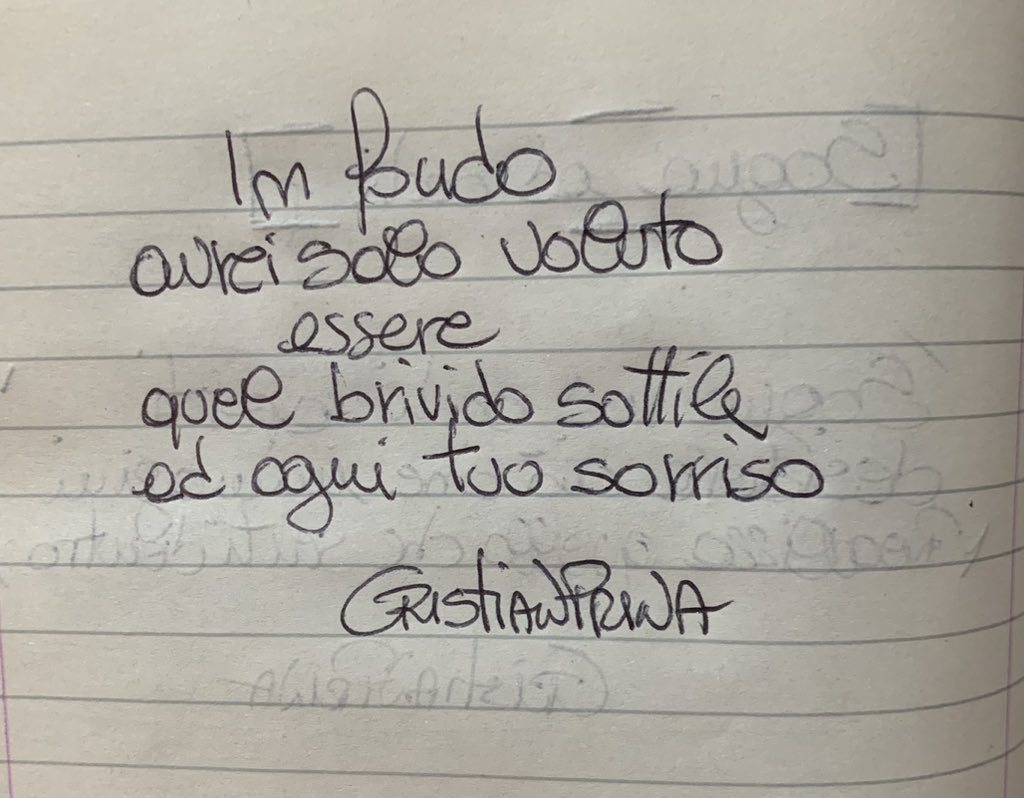 In fondo
avrei solo voluto
essere
quel brivido sottile
ad ogni tuo sorriso
Cristian Prina